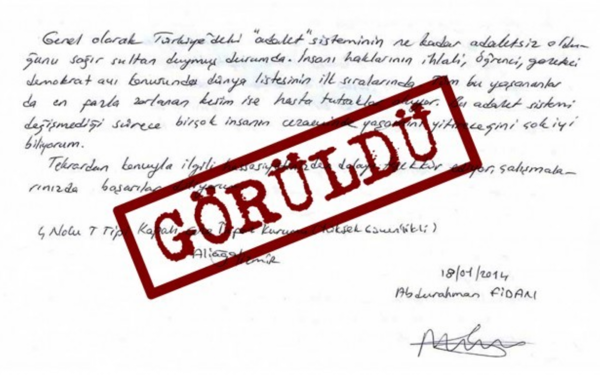 Genel olarak Türkiye'deki "adalet" sisteminin ne kadar adaletsiz oldu-
ğunu sağır sultan duymuş durumda. İnsanı haklarının ihlali, öğrenci, gazeteci
demokrat avı konusunda dünya listesinin ilk sıralarında. Tüm bu yaşananlar
da en fazla zorlanan kesim ise hasta tutuklular oluyor. Bu adalet sistemi
değişmediği sürece birçok insanın cezaevinde yaşamını yitireceğini çok iyi
biliyorum.
Tekrardan konuyla ilgili dolayı teşekkür ediyor, çalışmala-
rınızda başarılar diliyorum.
GÖRÜLDÜ
4 Nolu T Tipi Kapalı Kurumu (Yüksek Güvenlikli)
Aliağa İzmir
18/01/2014
Abdurahman FİDAN